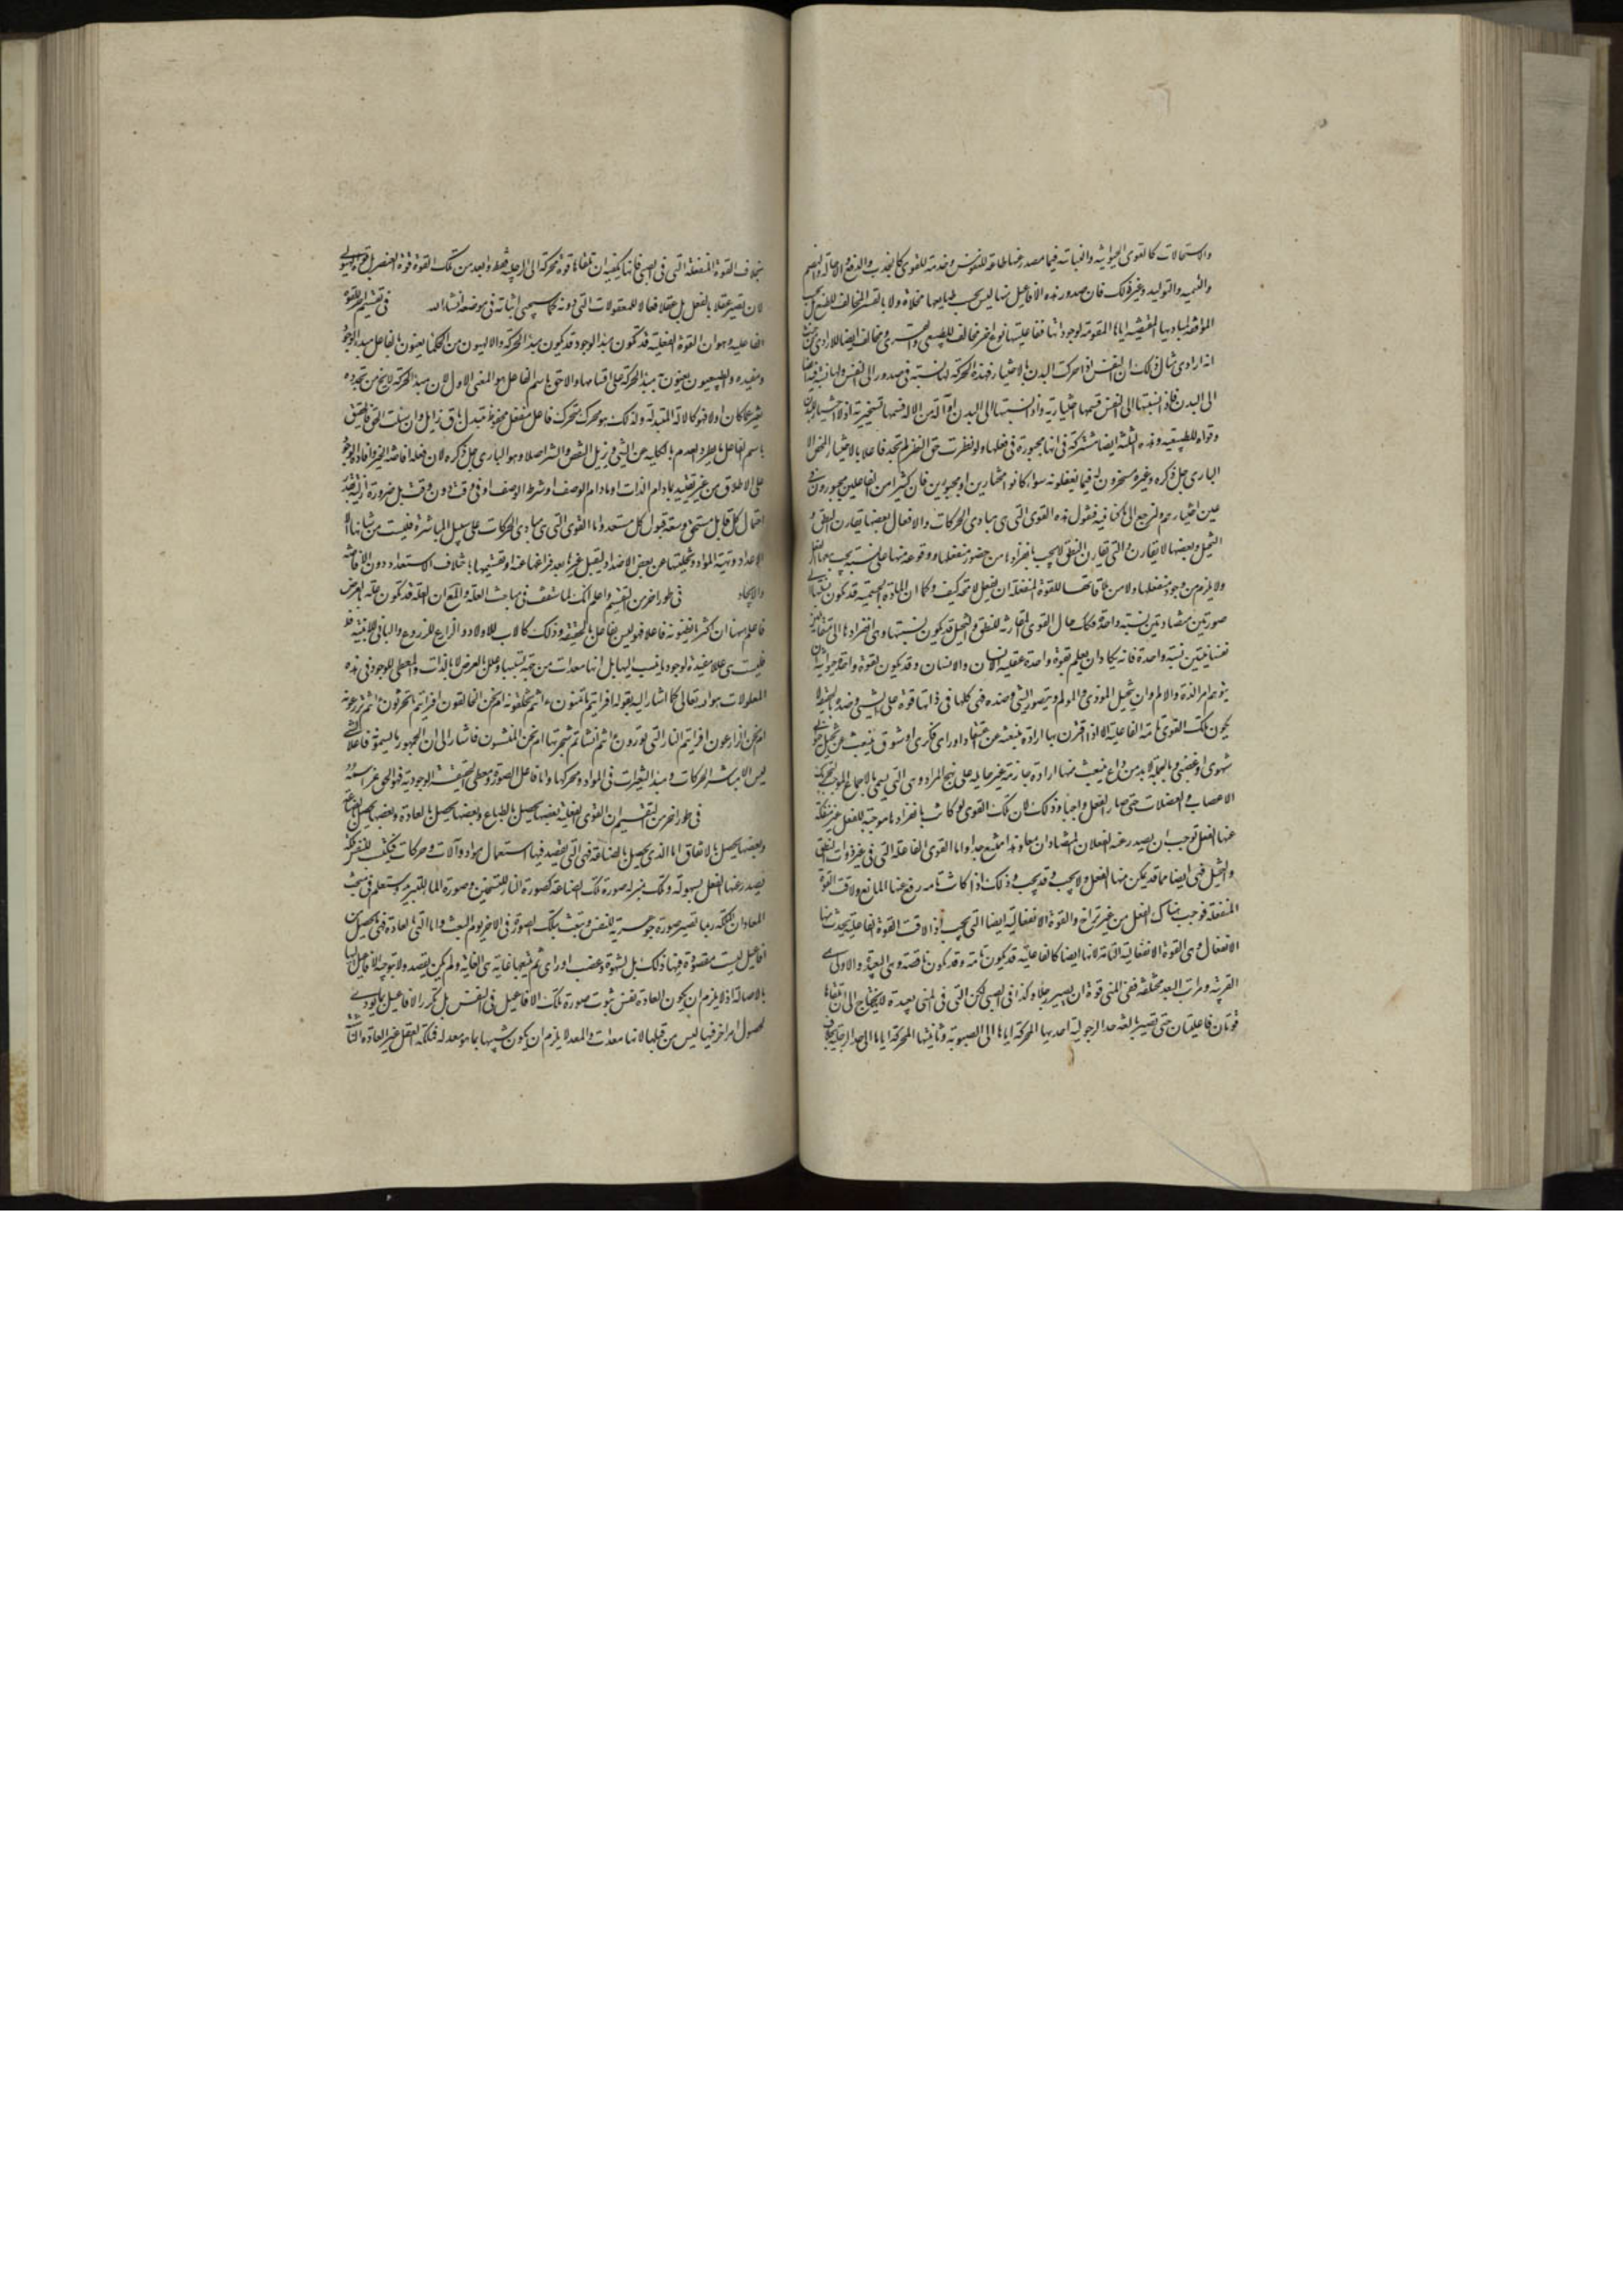 والاستحالات كالقوى الحيوانية والنباتية فيما مصدر عنها طاعة للنفوس وخدمة للقوى كالجذب والدفع والاحالة والهضم
والتنمية والتوليد وغير ذلك فان صدور هذه الافاعيل منها ليس بحسب طبايعها مخلاة ولا بالقسر المخالف للطبع بل بحسب
الموافقة لمباديها المقتضية اياها المقومة لوجوداتها ففاعليتها نوع اخر مخالف للطبيعى والقسرى ومخالف ايضا للارادى من حيث
انه ارادى مثال ذلك ان النفس اذا حركت البدن بالاختيار فهذه الحركة لها نسبة فى صدورها الى النفس ولها نسبة ايضا
الى البدن فاذا نسبتها الى النفس فسمها اختيارية واذا نسبتها الى البدن او آلة من الالة فسمها تسخيرية اذ لا اختيار للبدن
وقواه للطبيعية وهذه الثلثة ايضا مشتركة فى انها مجبورة فى فعلها ولو نظرت حق النظر لم تجد فاعلا بالاختيار المحض الا
البارى جل ذكره وغيره مسخرون له فيما يفعلونه سواء كانوا مختارين او مجبورين فان كثيرا من الفاعلين مجبورون فى
عين اختيارهم ولنرجع الى ما كنا فيه فنقول هذه القوى التى هى مبادى الحركات والافعال بعضها يقارن النطق و
التخيل وبعضها لا يقارن والتى يقارن النطق لا يجب بانفرادها من حضور منفعلها ووقوعه منها على نسبة يجب بها الفعل
ولا يلزم من وجود منفعلها ولا من ملاقاتها للقوة المنفعلة ان يفعل لا محة كيف وكما ان المادة الجسمية قد يكون نسبتها الى
صورتين متضادتين نسبة واحدة فكك حال القوى المقارنة للنطق والتخيل قد يكون نسبتها وهى بانفرادها الى متقابلين
نفسانيتين نسبة واحدة فانه يكاد ان يعلم بقوة واحدة عقلية الانسان واللاانسان وقد يكون لقوة واحدة حيوانية ان
يتوهم امر اللذة والالم وان يتخيل الموذى والمولم ويتصور الشى وضده فهى كلها فى ذاتها قوة على الشى وضده وبالحقيقة لا
يكون تلك القوى تامة الفاعلية الا اذا اقترن بها ارادة منبعثة عن اعتقاد او راى فكرى او شوق منبعث عن تخيل حيوانى
شهوى او غضبى وبالجملة لا بد من داع ينبعث منها ارادة جازمة غير مايلة على نهج المراد وهى التى يسمى بالاجماع الموجب لتحريك
الاعصاب والعضلات حتى صار الفعل واجبا وذلك لان تلك القوى لو كانت بانفرادها موجبة للفعل غير منفكة
عنها الفعل لوجب ان يصدر عنها الفعلان المتضادان معا وهذا ممتنع جدا واما القوى الفاعلة التى فى غير ذوات النطق
والتخيل فهى ايضا مما قد يمكن منها الفعل ولا يجب وقد يجب وذلك اذا كانت تامة رفع عنها المانع ولاقت القوة
المنفعلة فوجب هناك الفعل من غير تراخ والقوة الانفعالية ايضا التى يجب اذا لاقت القوة الفاعلية يحدث منها
الانفعال وهى القوة الانفعالية التامة لانها ايضا كالفاعلية قد يكون تامة وقد يكون ناقصة وهى البعيدة والاولى هى
القريبة ومراتب البعد مختلفة ففى المنى قوة ان يصير رجلا وكذا فى الصبى لكن التى فى المنى بعيدة لا يحتاج الى ان يلقاها
قوتان فاعليتان حتى تصير بالغة حد الرجولية احديها المحركة اياها الى الصبوية وثانيتها المحركة اياها الى حد الرجلية بخلاف
بخلاف القوة المنفعلة التى فى الصبى فانها يكفيه ان تلقاها قوة محركة الى الرجلية فقط وابعد من تلك القوة قوة العنصر بل قوة الهيولى
لان تصير عقلا بالفعل بل عقلا فعالا للمعقولات التى دونه كما سيجى اثباته فى موضعه انشاء الله فى تقسيم اخر للقوة
الفاعلية وهو ان القوة الفعلية قد تكون مبدء الوجود وقد يكون مبدء الحركة والالهيون من الحكماء يعنون بالفاعل مبدء الوجود
ومفيده والطبيعيون يعنون به مبدء الحركة على اقسامها والاحق باسم الفاعل هو المعنى الاول لان مبدء الحركة لا يخ من تجدد و
تغير عما كان اولا فهو كالالة المتبدلة ولذلك هو محرك متحرك فاعل منفعل محفوظ متبدل باق زايل وان سئلت الحق فالحقيق
باسم الفاعل ما يطرد العدم بالكلية عن الشى ويزيل النقص والشر اصلا وهو البارى جل ذكره لان فعله افاضة الخير وافادة الوجود
على الاطلاق من غير تقييد بما دام الذات او مادام الوصف او بشرط الوصف او فى وقت دون وقت بل ضرورة ازلية بقدر
احتمال كل قابل مستحق وسعة قبول كل مستعد واما القوى التى هى مبادى الحركات على سبيل المباشرة فليست من شانها الا
الاعداد وتهيئة المواد وتخليتها عن بعض الاضداد ليقبل غيرها بعد فراغها عنه او تقسيمها باختلاف الاستعداد دون الافاضة
والايجاد فى طور اخر من التقسيم واعلم انك لما ستقف فى مباحث العلة والمع ان العلة قد تكون علة بالعرض
فاعلم ههنا ان كثرا ما يظنونه فاعلا فهو ليس بفاعل بالحقيقة وذلك كالاب للاولاد والزارع للزروع والبانى للابنية
فليست هى عللا مفيدة لوجود ما ينسب اليها بل انها معدات من جهة تسببها وعلل بالعرض لا بالذات والمعطى للوجود فى هذه
المعلولات هو الله تعالى كما اشار اليه بقوله افرايتم ما تمنون ءانتم تخلقونه ام نحن الخالقون افرايتم ما تحرثون ءانتم تزرعونه
ام نحن الزارعون افرايتم النار التى تورون ءانتم انشاتم شجرتها ام نحن المنشئون فاشار الى ان الجمهور ما يسمونه فاعلا
ليس الا مباشر الحركات ومبدء التغيرات فى المواد ومحركها واما فاعل الصورة ومعطى الحقيقة الوجودية فهو الحق عز اسمه
فى طور اخر من التقسيم ان القوى الفعلية بعضها يحصل بالطباع وبعضها يحصل بالعادة وبعضها يحصل بالصناعة
وبعضها يحصل بالاتفاق اما الذى يحصل بالصناعة فهى التى يقصد فيها استعمال مواد وآلات وحركات فيكتسب للنفس ملكة
يصدر عنها الفعل بسهولة وتلك بمنزلة صورة تلك الصناعة كصورة النار للتسخين وصورة الماء للتبريد وستعلم فى مبحث
المعاد ان الملكة ربما تصير صورة جوهرية للنفس وتبعث بتلك الصورة فى الاخرة يوم البعث واما التى بالعادة فهى ما يحصل من
افاعيل ليست مقصودة فيها ذلك بل لشهوة وغضب او راى ثم يتبعها غاية هى الغاية ولم يكن يقصد ولا يتوجه الافاعيل اليها
بالاصالة اذ لا يلزم ان يكون العادة نفس ثبوت صورة تلك الافاعيل فى النفس بل تكرر الافاعيل مما يودى
لحصول امر اخر فيها ليس من قبلها لانها معدات والمعد لا يلزم ان يكون شبيها بما هو معد له فملكة العقل غير العادة